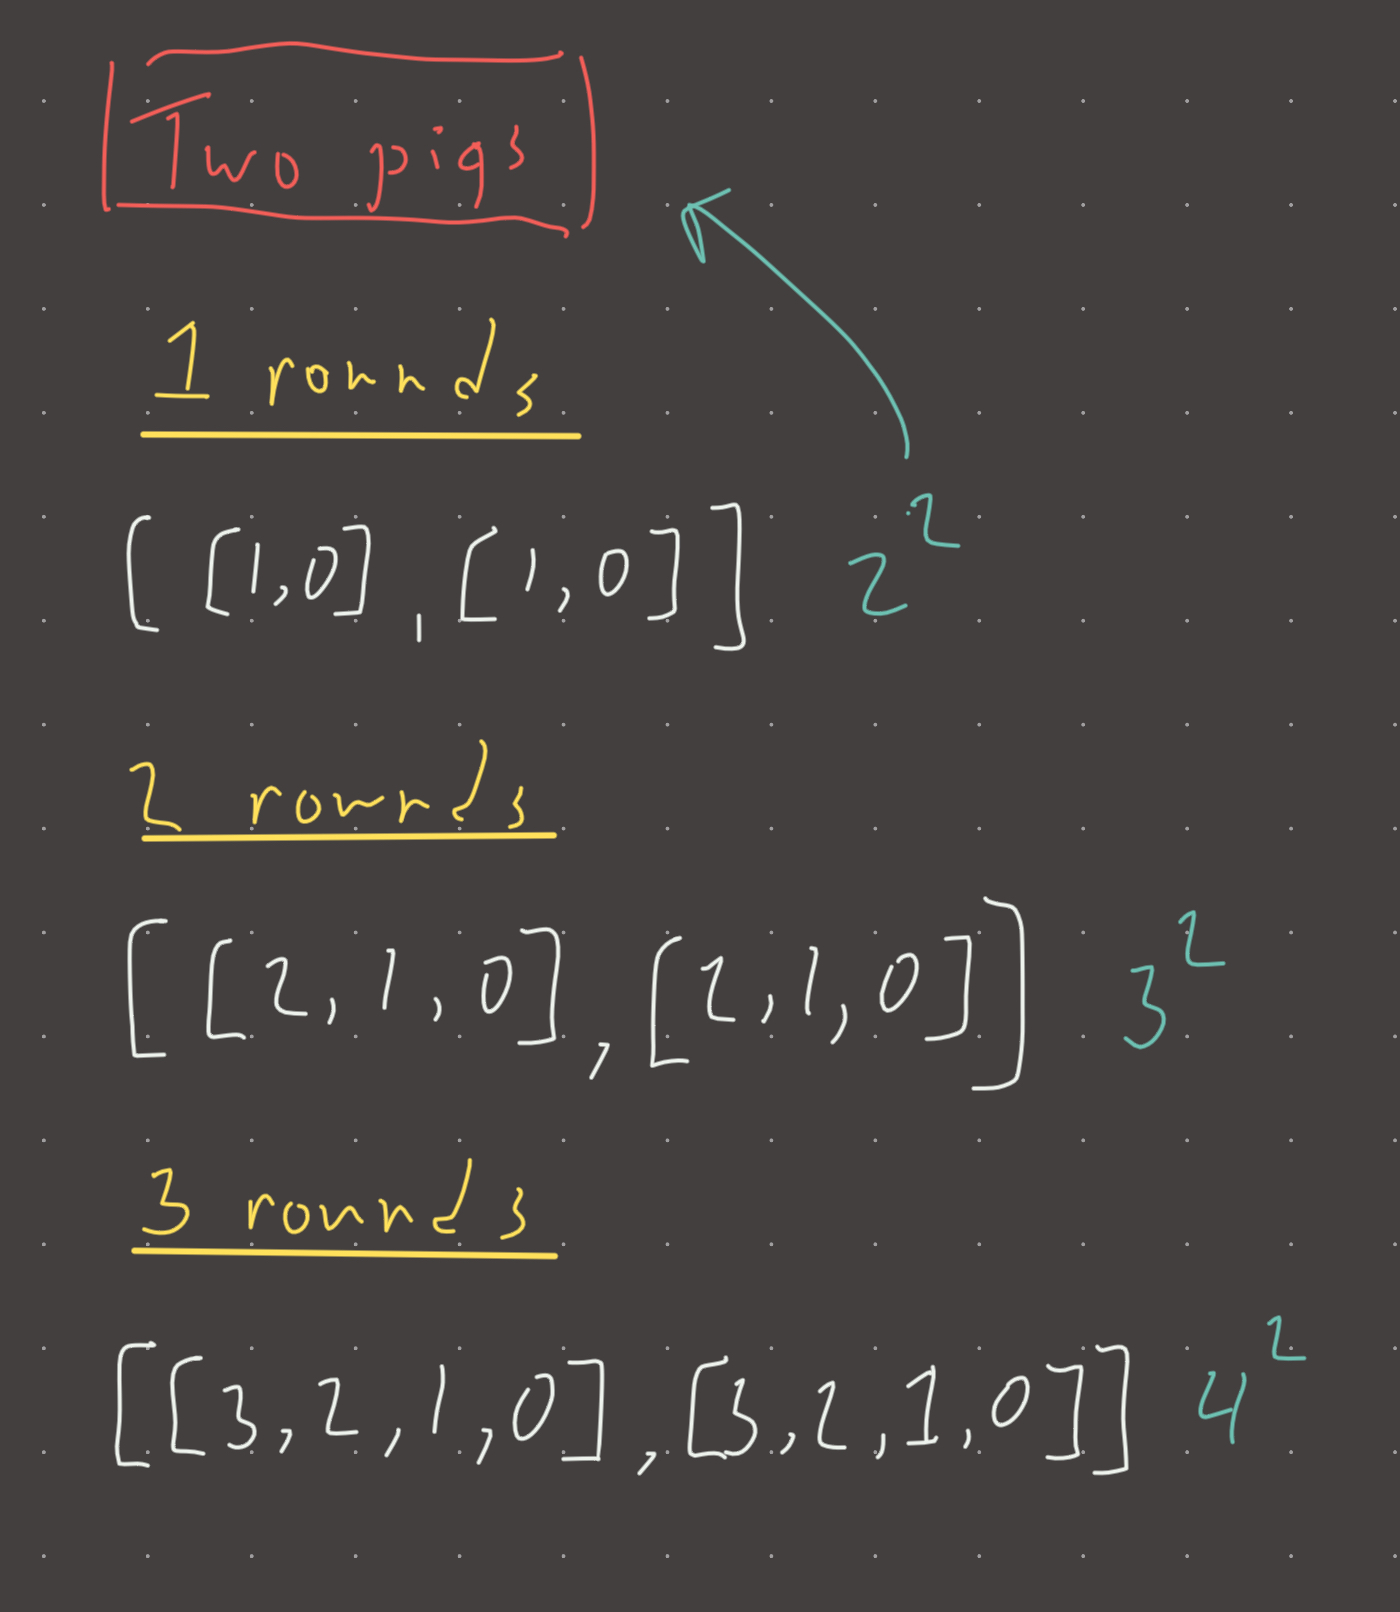 Two pigs
1 rounds
[[1,0],[1,0]] 2²
2 rounds
[[2,1,0],[2,1,0]] 3²
3 rounds
[[3,2,1,0],[3,2,1,0]] 4²